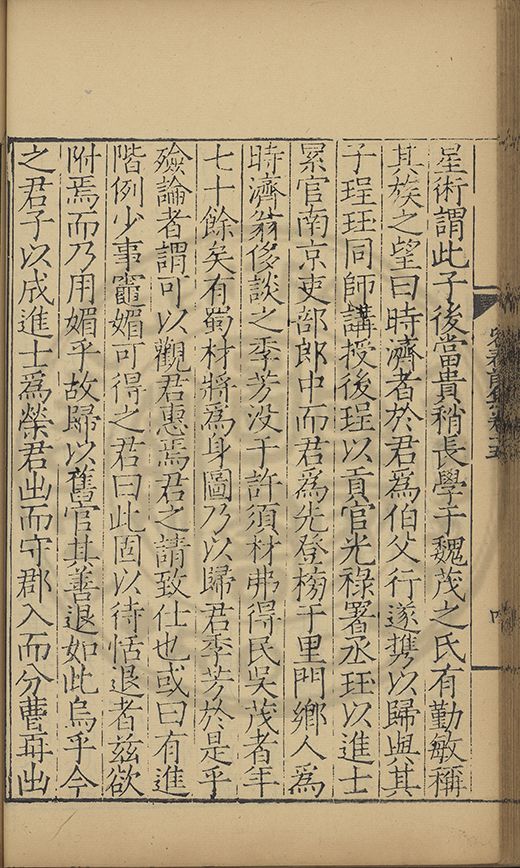 星術謂此子後當貴稍長學于魏茂之氏有勤敏稱
其族之望曰時濟者於君爲伯父行遂携以歸與其
子珵珏同師講授後珵以貢官光祿署丞珏以進士
累官南京吏部郎中而君爲先登榜于里門鄉人爲
時濟翁侈談之季芳没于許須材弗得民吳茂者年
七十餘矣有蜀材將爲身圖乃以歸君季芳於是乎
殮論者謂可以觀君惠焉君之請致仕也或曰有進
階例少事竈媚可得之君曰此固以待恬退者兹欲
附焉而乃用媚乎故歸以舊官其善退如此烏乎今
之君子以成進士爲榮君出而守郡入而分曹再出